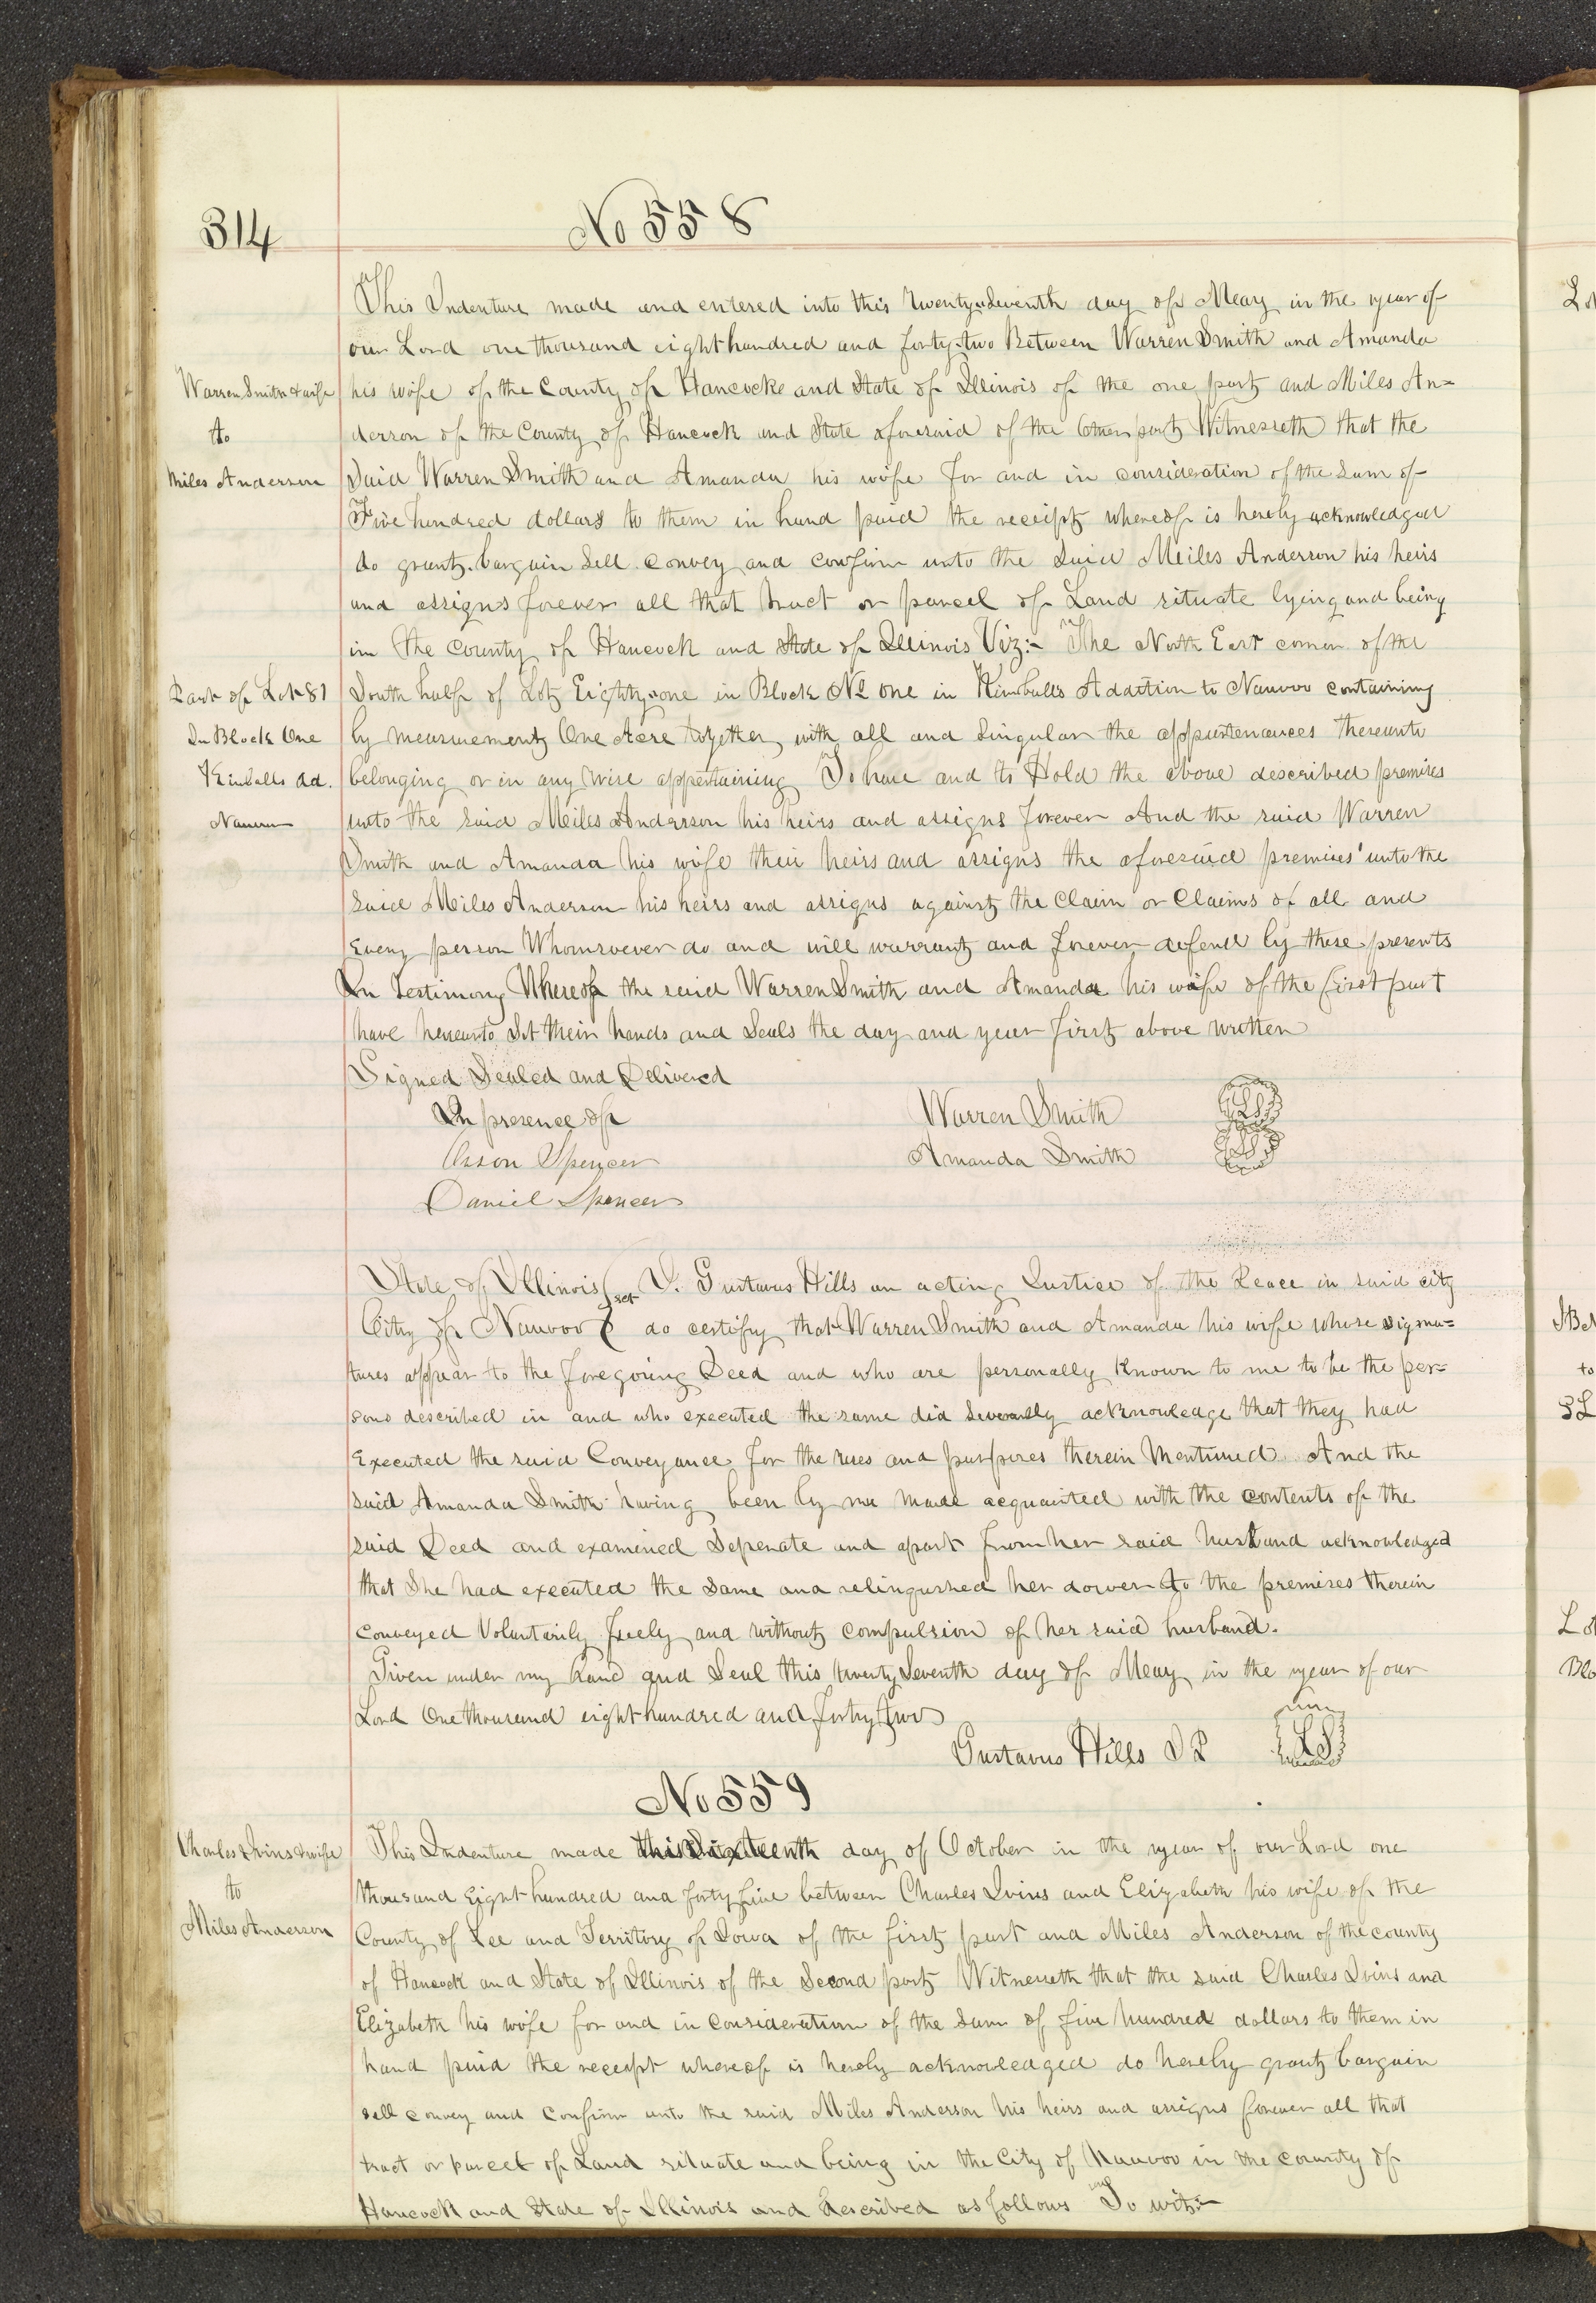 314
No 558
This Indenture made and entered into this Twenty Seventh day of May in the year of
our Lord one thousand eight hundred and forty-two Between Warren Smith and Amanda
Warren Smith & wife
to
Miles Anderson
his wife of the County of Hancock and State of Illinois of the one part and Miles An=
derson of the County of Hancock and State aforesaid of the Other part Witnesseth that the
Said Warren Smith and Amanda his wife for and in consideration of the Sum of
Five hundred dollars to them in hand paid the receipt whereof is hereby acknowledged
do grant, bargain Sell Convey and confirm unto the Said Miles Anderson his heirs
and assigns forever all that tract or parcel of Land situate lying and being
in the County of Hancock and State of Illinois Viz:- The North East corner of the
Part of Lot 81
In Block One
Kimballs Ad.
Nauvoo
South half of Lot Eighty-one in Block No one in Kimballs Addition to Nauvoo containing
by measurement One Acre together with all and Singular the appurtenances thereunto
belonging or in any wise appertaining To have and to Hold the above described premises
unto the said Miles Anderson his heirs and assigns forever And the said Warren
Smith and Amanda his wife their heirs and assigns the aforesaid premises unto the
said Miles Anderson his heirs and assigns against the Claim or Claims of all and
Every person Whomsoever do and will warrant and forever defend by these presents
In Testimony Whereof the said Warren Smith and Amanda his wife of the first part
have hereunto Set their hands and Seals the day and year first above written
Signed Sealed and Delivered
In presence of
Orson Spencer
Daniel Spencer
Warren Smith LS
Amanda Smith LS
State of Illinois } sct I. Gustavus Hills an acting Justice of the Peace in said city
City of Nauvoo } do certify that Warren Smith and Amanda his wife whose signa=
tures appear to the foregoing Deed and who are personally known to me to be the per=
sons described in and who executed the same did Severally acknowledge that they had
Executed the said Conveyance for the uses and purposes therein Mentioned. And the
said Amanda Smith having been by me made acquainted with the contents of the
said Deed and examined Seperate and apart from her said husband acknowledged
that She had executed the Same and relinqushed her dower to the premises therein
conveyed Voluntarily freely and without compulsion of her said husband.
Given under my hand and Seal this twenty Seventh day of May in the year of our
Lord One thousand eight hundred and forty two
Gustavus Hills J P LS
No 559
Charles Ivins & wife
to
Miles Anderson
This Indenture made this Sixteenth day of October in the year of our Lord one
thousand Eight hundred and forty five between Charles Ivins and Elizabeth his wife of the
County of Lee and Territory of Iowa of the first part and Miles Anderson of the county
of Hancock and State of Illinois of the Second part Witnesseth that the said Charles Ivins and
Elizabeth his wife for and in Consideration of the Sum of five hundred dollars to them in
hand paid the receipt whereof is hereby acknowledged do hereby grant bargain
sell convey and Confirm unto the said Miles Anderson his heirs and assigns forever all that
tract or parcel of Land situate and being in the City of Nauvoo in the county of
Hancock and State of Illinois and described as follows To wit:-